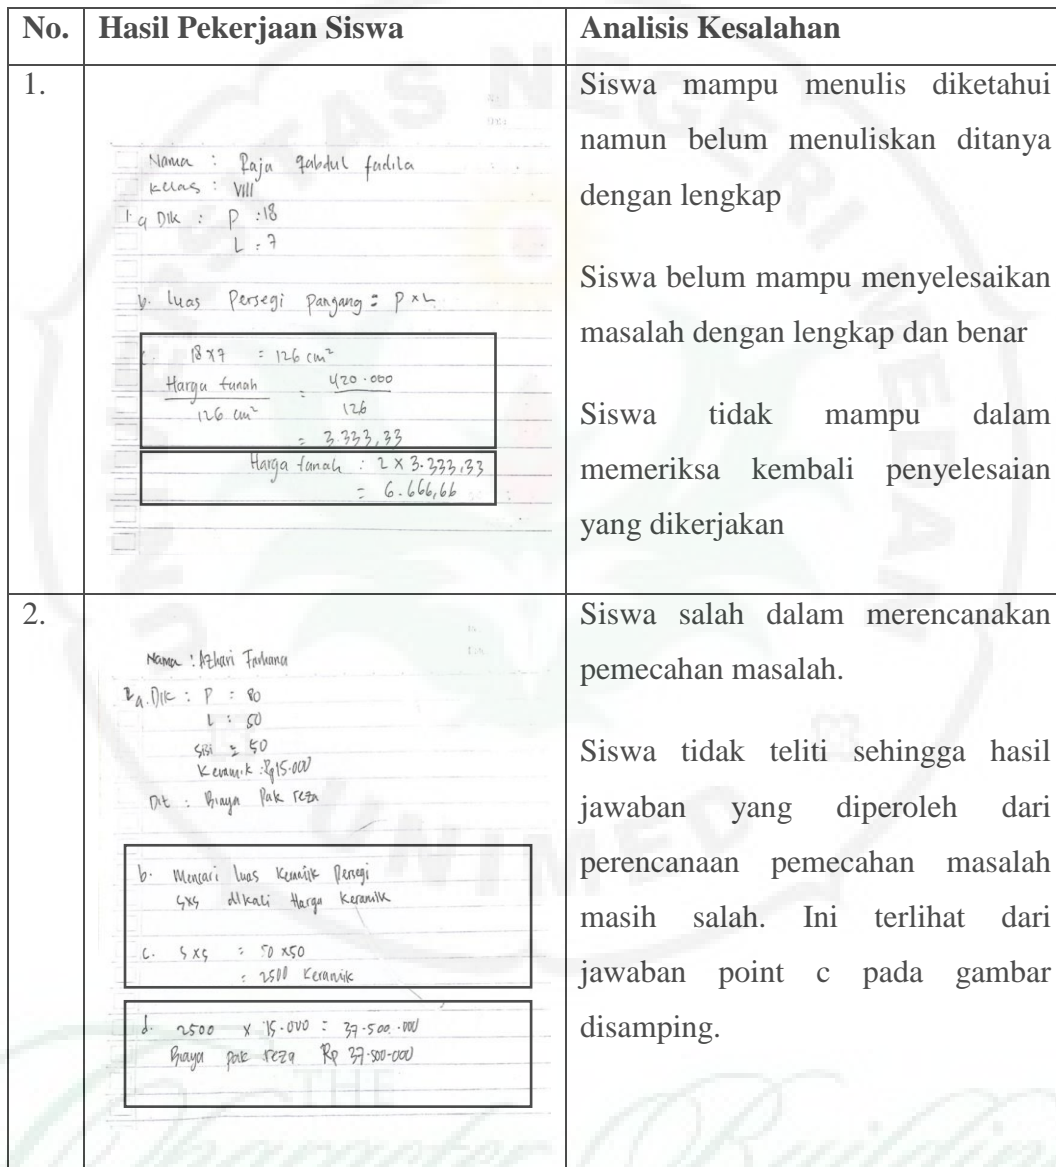 No. Hasil Pekerjaan Siswa Analisis Kesalahan
1.
Nama : Raja qabdul fadila
Kelas : VIII
1. a DIK : P : 18
L : 7
b. luas Persegi pangang = P x L
c. 18 x 7 = 126 cm²
Harga tanah = 420.000
126 cm² 126
= 3.333,33
Harga tanah : 2 x 3.333,33
= 6.666,66
Siswa mampu menulis diketahui
namun belum menuliskan ditanya
dengan lengkap
Siswa belum mampu menyelesaikan
masalah dengan lengkap dan benar
Siswa tidak mampu dalam
memeriksa kembali penyelesaian
yang dikerjakan
2.
Nama : Azhari Farhana
a. DIK : P : 80
L : 50
sisi = 50
Keramik : Rp15.000
Dit : Biaya Pak reza
b. Mencari luas Keramik Persegi
sxs dikali Harga Keramik
c. s x s = 50 x50
= 2500 Keramik
d. 2500 x 15.000 = 37.500.000
Biaya pak reza Rp 37.500.000
Siswa salah dalam merencanakan
pemecahan masalah.
Siswa tidak teliti sehingga hasil
jawaban yang diperoleh dari
perencanaan pemecahan masalah
masih salah. Ini terlihat dari
jawaban point c pada gambar
disamping.
UNIMED
THE